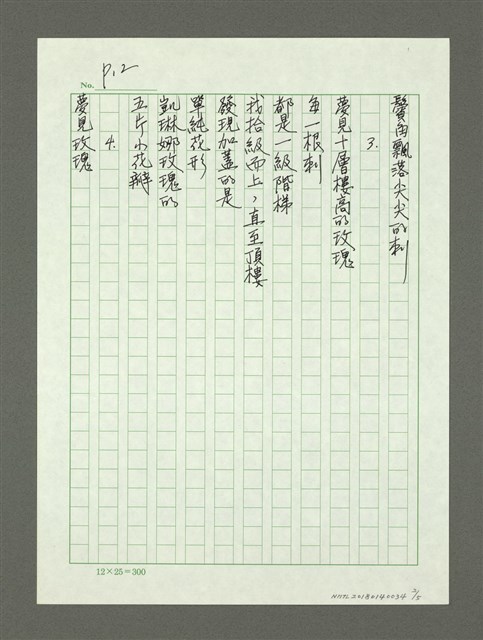 No. P.2
鬢角飄落尖尖的刺
3.
夢見十層樓高的玫瑰
每一根刺
都是一級階梯
我拾級而上，直至頂樓
發現加蓋的是
單純花形
凱琳娜玫瑰的
五片小花瓣
4.
夢見玫瑰
12×25=300
NMTL20180140034 2/5